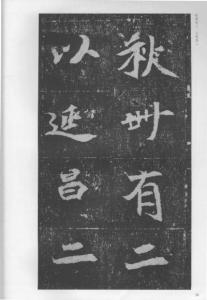 秋卌有二
以延昌二